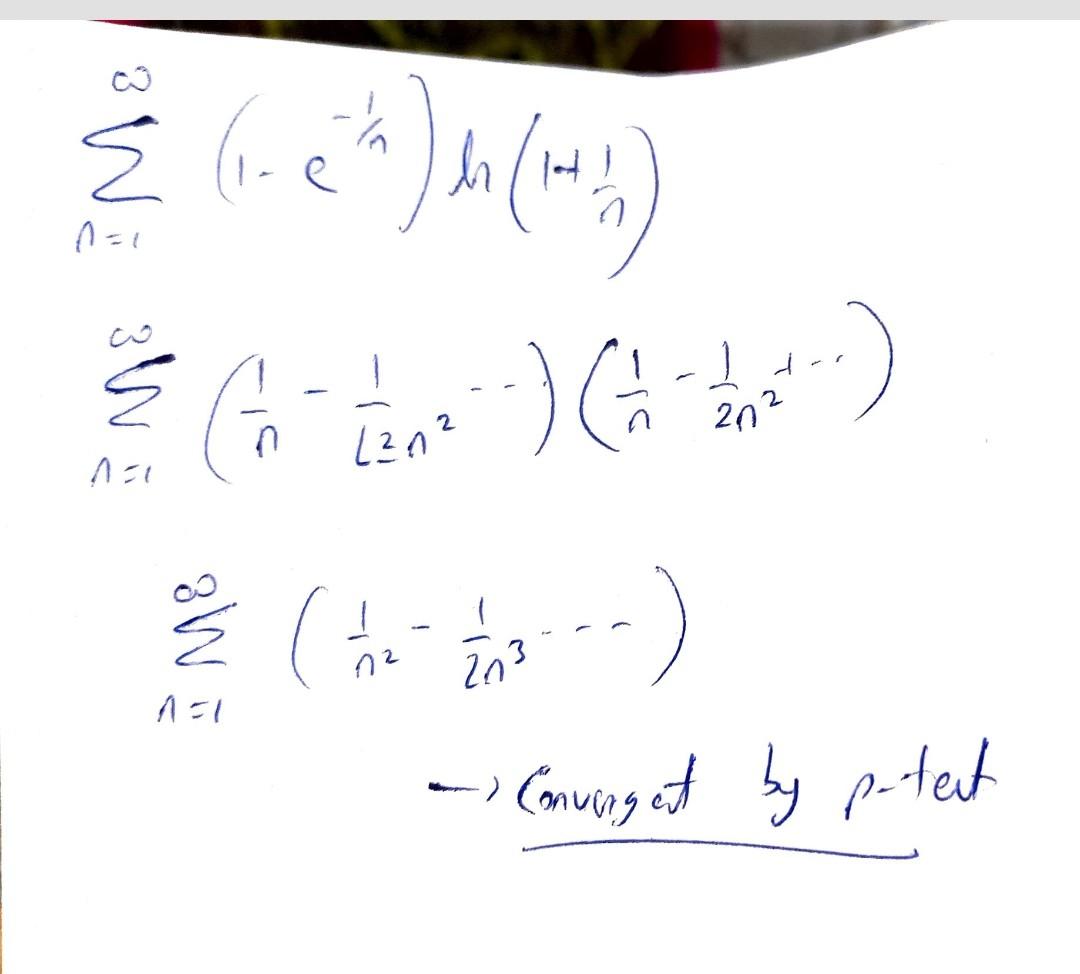 ∞ Σ n=1 (1 - e^(-1/n)) ln(1+1/n)
∞ Σ n=1 (1/n - 1/(⌊2 n²) ---)(1/n - 1/(2n²) + ---)
∞ Σ n=1 (1/n² - 1/(2n³) ----)
→ Convergent by p-test